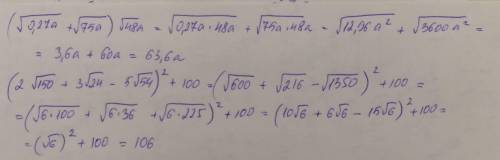 (√0,27a + √75a) √48a = √0,27a·48a + √75a·48a = √12,96a² + √3600a² =
= 3,6a + 60a = 63,6a
(2√150 + 3√24 − 5√54)² + 100 = (√600 + √216 − √1350)² + 100 =
= (√6·100 + √6·36 + √6·225)² + 100 = (10√6 + 6√6 − 15√6)² + 100 =
= (√6)² + 100 = 106